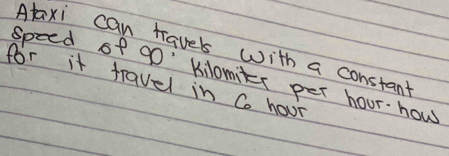 A taxi can travels with a constant
speed of 90 kilomiter per hour. how
for it travel in 6 hour